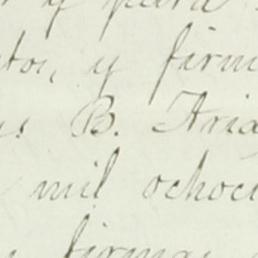 y para
tor, y firm
s B. Aria
mil ochoci
firmas